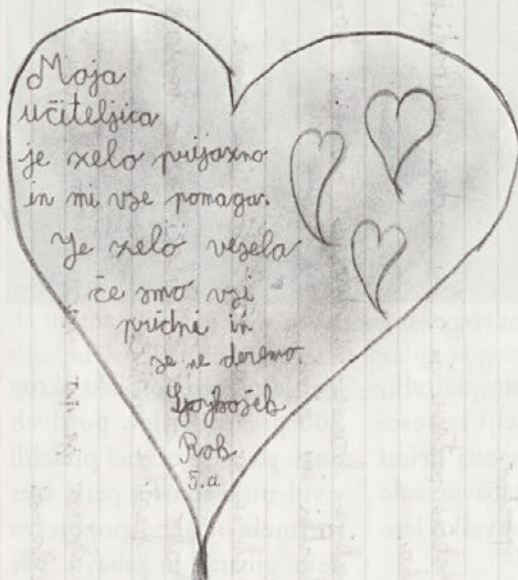 Moja
učiteljica
je zelo prijazno
in mi vse pomaga.
Je zelo vesela
če smo vsi
pridni in
se ne deremo.
Rob
5.a